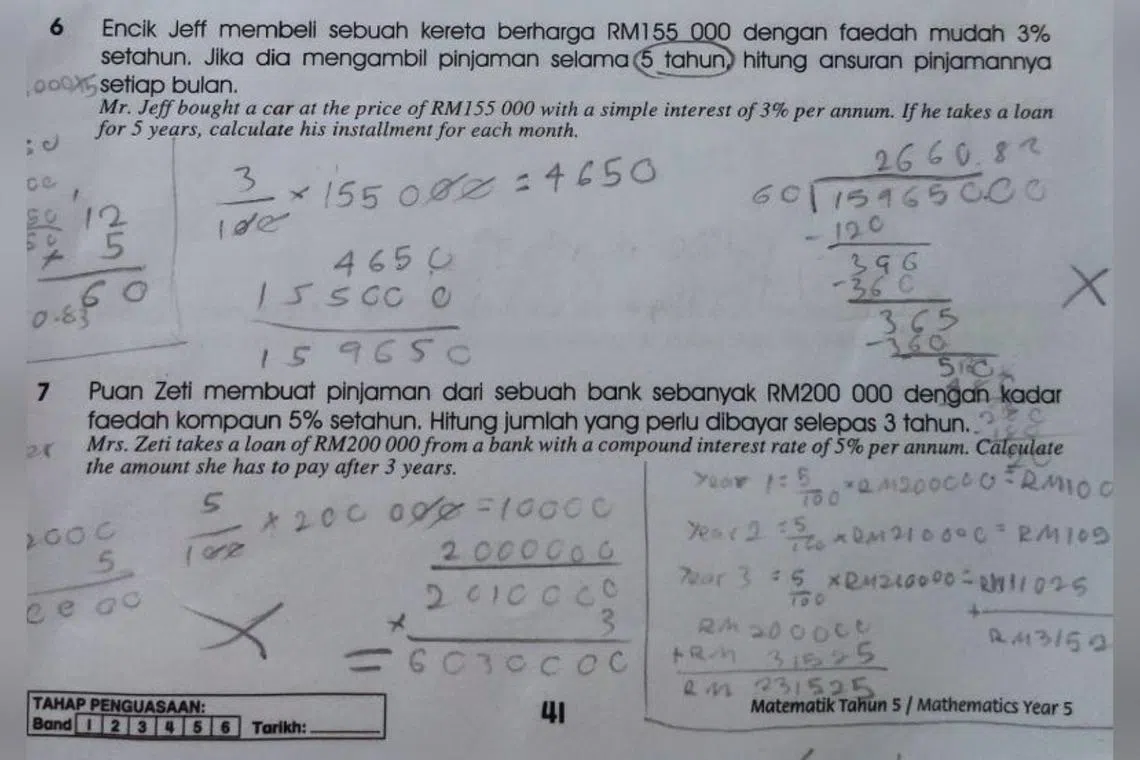 6 Encik Jeff membeli sebuah kereta berharga RM155 000 dengan faedah mudah 3%
setahun. Jika dia mengambil pinjaman selama 5 tahun, hitung ansuran pinjamannya
setiap bulan.
Mr. Jeff bought a car at the price of RM155 000 with a simple interest of 3% per annum. If he takes a loan
for 5 years, calculate his installment for each month.
3/100 × 155 000 = 4650
4650
155000
159650
12
× 5
60
0.83
2660.82
60 15965000
- 120
396
- 360
365
- 360
7 Puan Zeti membuat pinjaman dari sebuah bank sebanyak RM200 000 dengan kadar
faedah kompaun 5% setahun. Hitung jumlah yang perlu dibayar selepas 3 tahun.
Mrs. Zeti takes a loan of RM200 000 from a bank with a compound interest rate of 5% per annum. Calculate
the amount she has to pay after 3 years.
5/100 × 200 000 = 10000
2000000
2010000
× 3
= 6030000
Year 1 = 5/100 × RM200000 = RM100
Year 2 = 5/100 × RM210000 = RM105
Year 3 = 5/100 × RM210000 = RM11025
+
RM3152
RM 200000
+RM 31525
RM 231525
TAHAP PENGUASAAN:
Band 1 2 3 4 5 6 Tarikh:
41
Matematik Tahun 5 / Mathematics Year 5